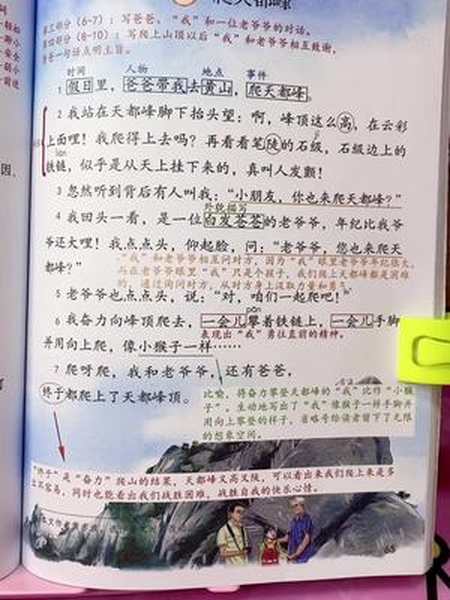 爬天都峰
第三部分（6-7）：写爸爸、“我”和一位老爷爷的对话。
第四部分（8-10）：写爬上山顶以后“我”和老爷爷相互致谢，
爸爸一句话点明主旨。
时间 人物 地点 事件
1 假日里，爸爸带我去黄山，爬天都峰。
2 我站在天都峰脚下抬头望：啊，峰顶这么高，在云彩
上面哩！我爬得上去吗？再看看笔陡的石级，石级边上的
铁链，似乎是从天上挂下来的，真叫人发颤！
3 忽然听到背后有人叫我：“小朋友，你也来爬天都峰？”
外貌描写
4 我回头一看，是一位白发苍苍的老爷爷，年纪比我爷
爷还大哩！我点点头，仰起脸，问：“老爷爷，您也来爬天
都峰？”
“我”和老爷爷相互问对方，因为“我”眼里老爷爷年纪很大，
而在老爷爷眼里“我”只是个孩子，我们爬上天都峰都是困难
的，通过询问对方，从对方身上汲取力量和勇气。
5 老爷爷也点点头，说：“对，咱们一起爬吧！”
pān
6 我奋力向峰顶爬去，一会儿攀着铁链上，一会儿手脚
表现出“我”勇往直前的精神。
并用向上爬，像小猴子一样……
7 爬呀爬，我和老爷爷，还有爸爸，
终于都爬上了天都峰顶。
比喻，将奋力攀登天都峰的“我”比作“小猴
子”，生动地写出了“我”像猴子一样手脚并
用向上攀登的样子，省略号给读者留下了无限
的想象空间。
“终于”是“奋力”爬山的结果，天都峰又高又陡，可以看出来我们爬上来是多
么不容易，同时也能看出我们战胜困难，战胜自我的快乐心情。
65